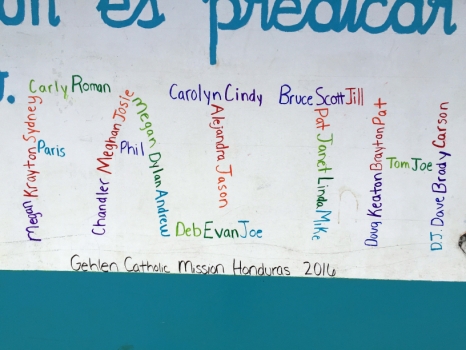 es predicar
Carly Roman
Megan Krayton Sydney
Paris
Chandler Meghan Josie
Phil
Megan Dylan Andrew
Carolyn Cindy
Alejandra Jason
Deb Evan Joe
Bruce Scott Jill
Pat Janet Linda Mike
Doug Keaton Brayton Pat
Tom Joe
D.J. Dave Brody Carson
Gehlen Catholic Mission Honduras 2016